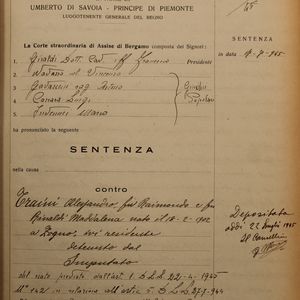 UMBERTO DI SAVOIA - PRINCIPE DI PIEMONTE
LUOGOTENENTE GENERALE DEL REGNO
SENTENZA
La Corte straordinaria di Assise di Bergamo composta dei Signori:
in data 9-7-945
1. Giraldi Dott. Cav. Francesco Presidente
2. Vincenzo
3. rag. Arturo Giudici
4. Luigi Popolari
5. Mario
ha pronunciato la seguente
SENTENZA
nella causa
contro
Traini Alessandro, fu Raimondo e fu
Rinaldi Maddalena nato il 18-2-902
a Zogno, ivi residente
Depositata
addì 22 luglio 945
Il Cancelliere
detenuto dal
Imputato
del reato previsto dall'art. 1 D.L.L. 22-4-1945
N° 142 in relazione all'art. 5 D.L.L. 27-7-944